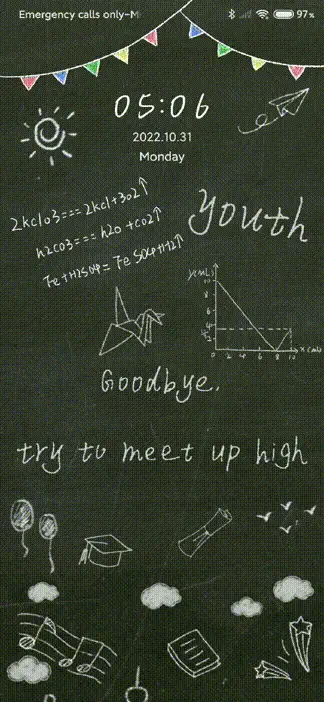 Emergency calls only–M
97%
05:06
2022.10.31
Monday
Youth
2kclo3===2kcl+3o2↑
h2co3===h2o+co2↑
Fe+H2SO4=FeSO4+H2↑
y(mL)
10
8
6
4
0 2 4 6 8 10 x(mL)
Goodbye.
try to meet up high